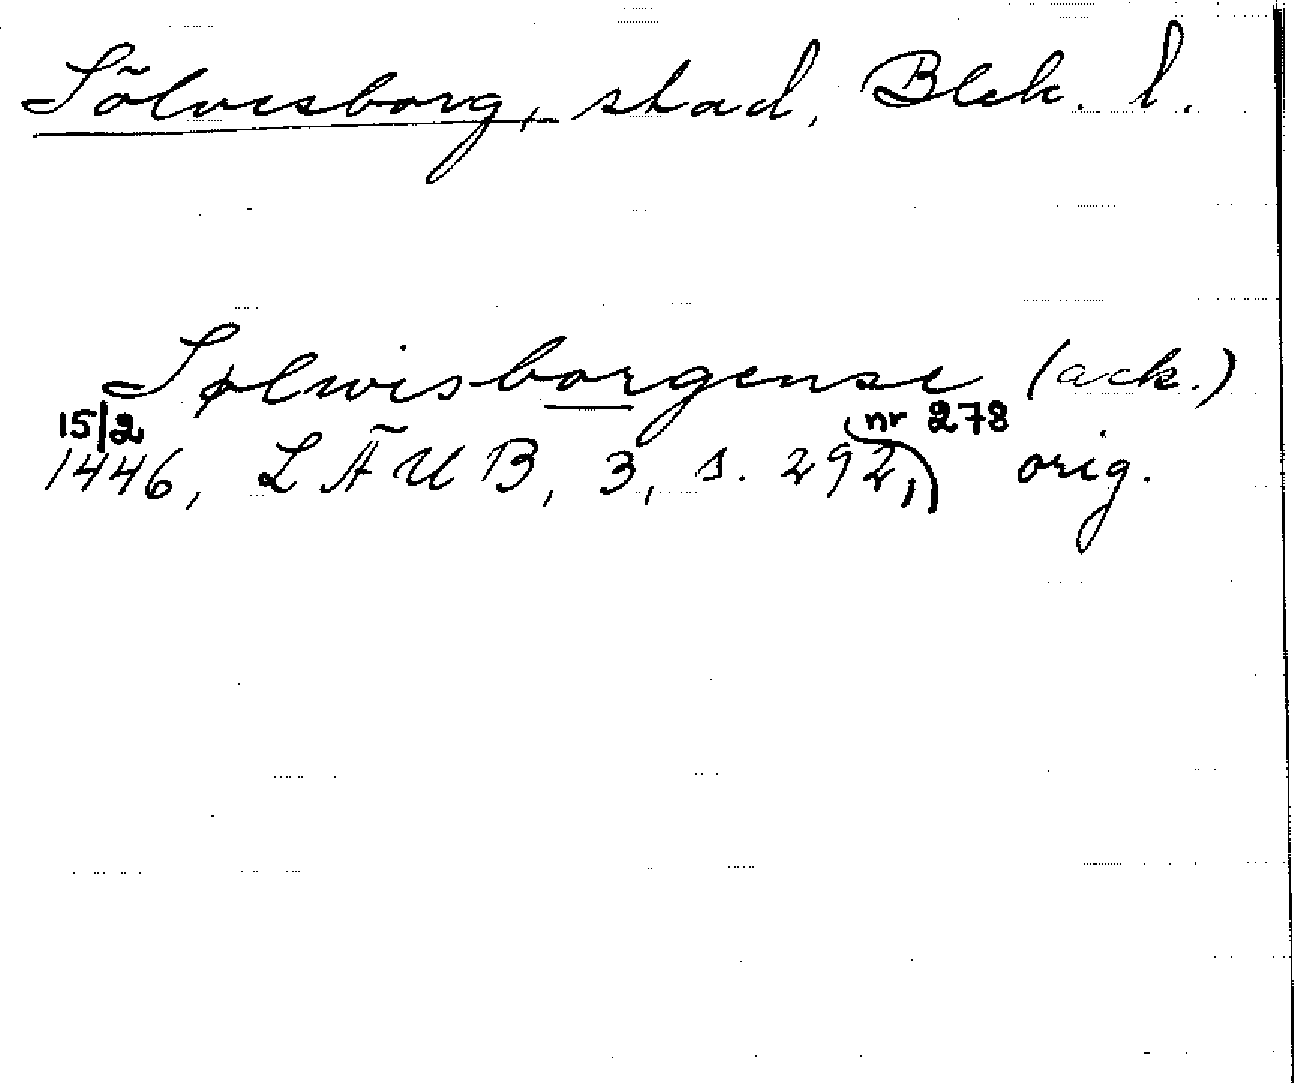 Sölvesborg, stad, Blek. l.
Sølwisborgense (ack.)
15/2 nr 278
1446, LÄUB, 3, s. 292, orig.